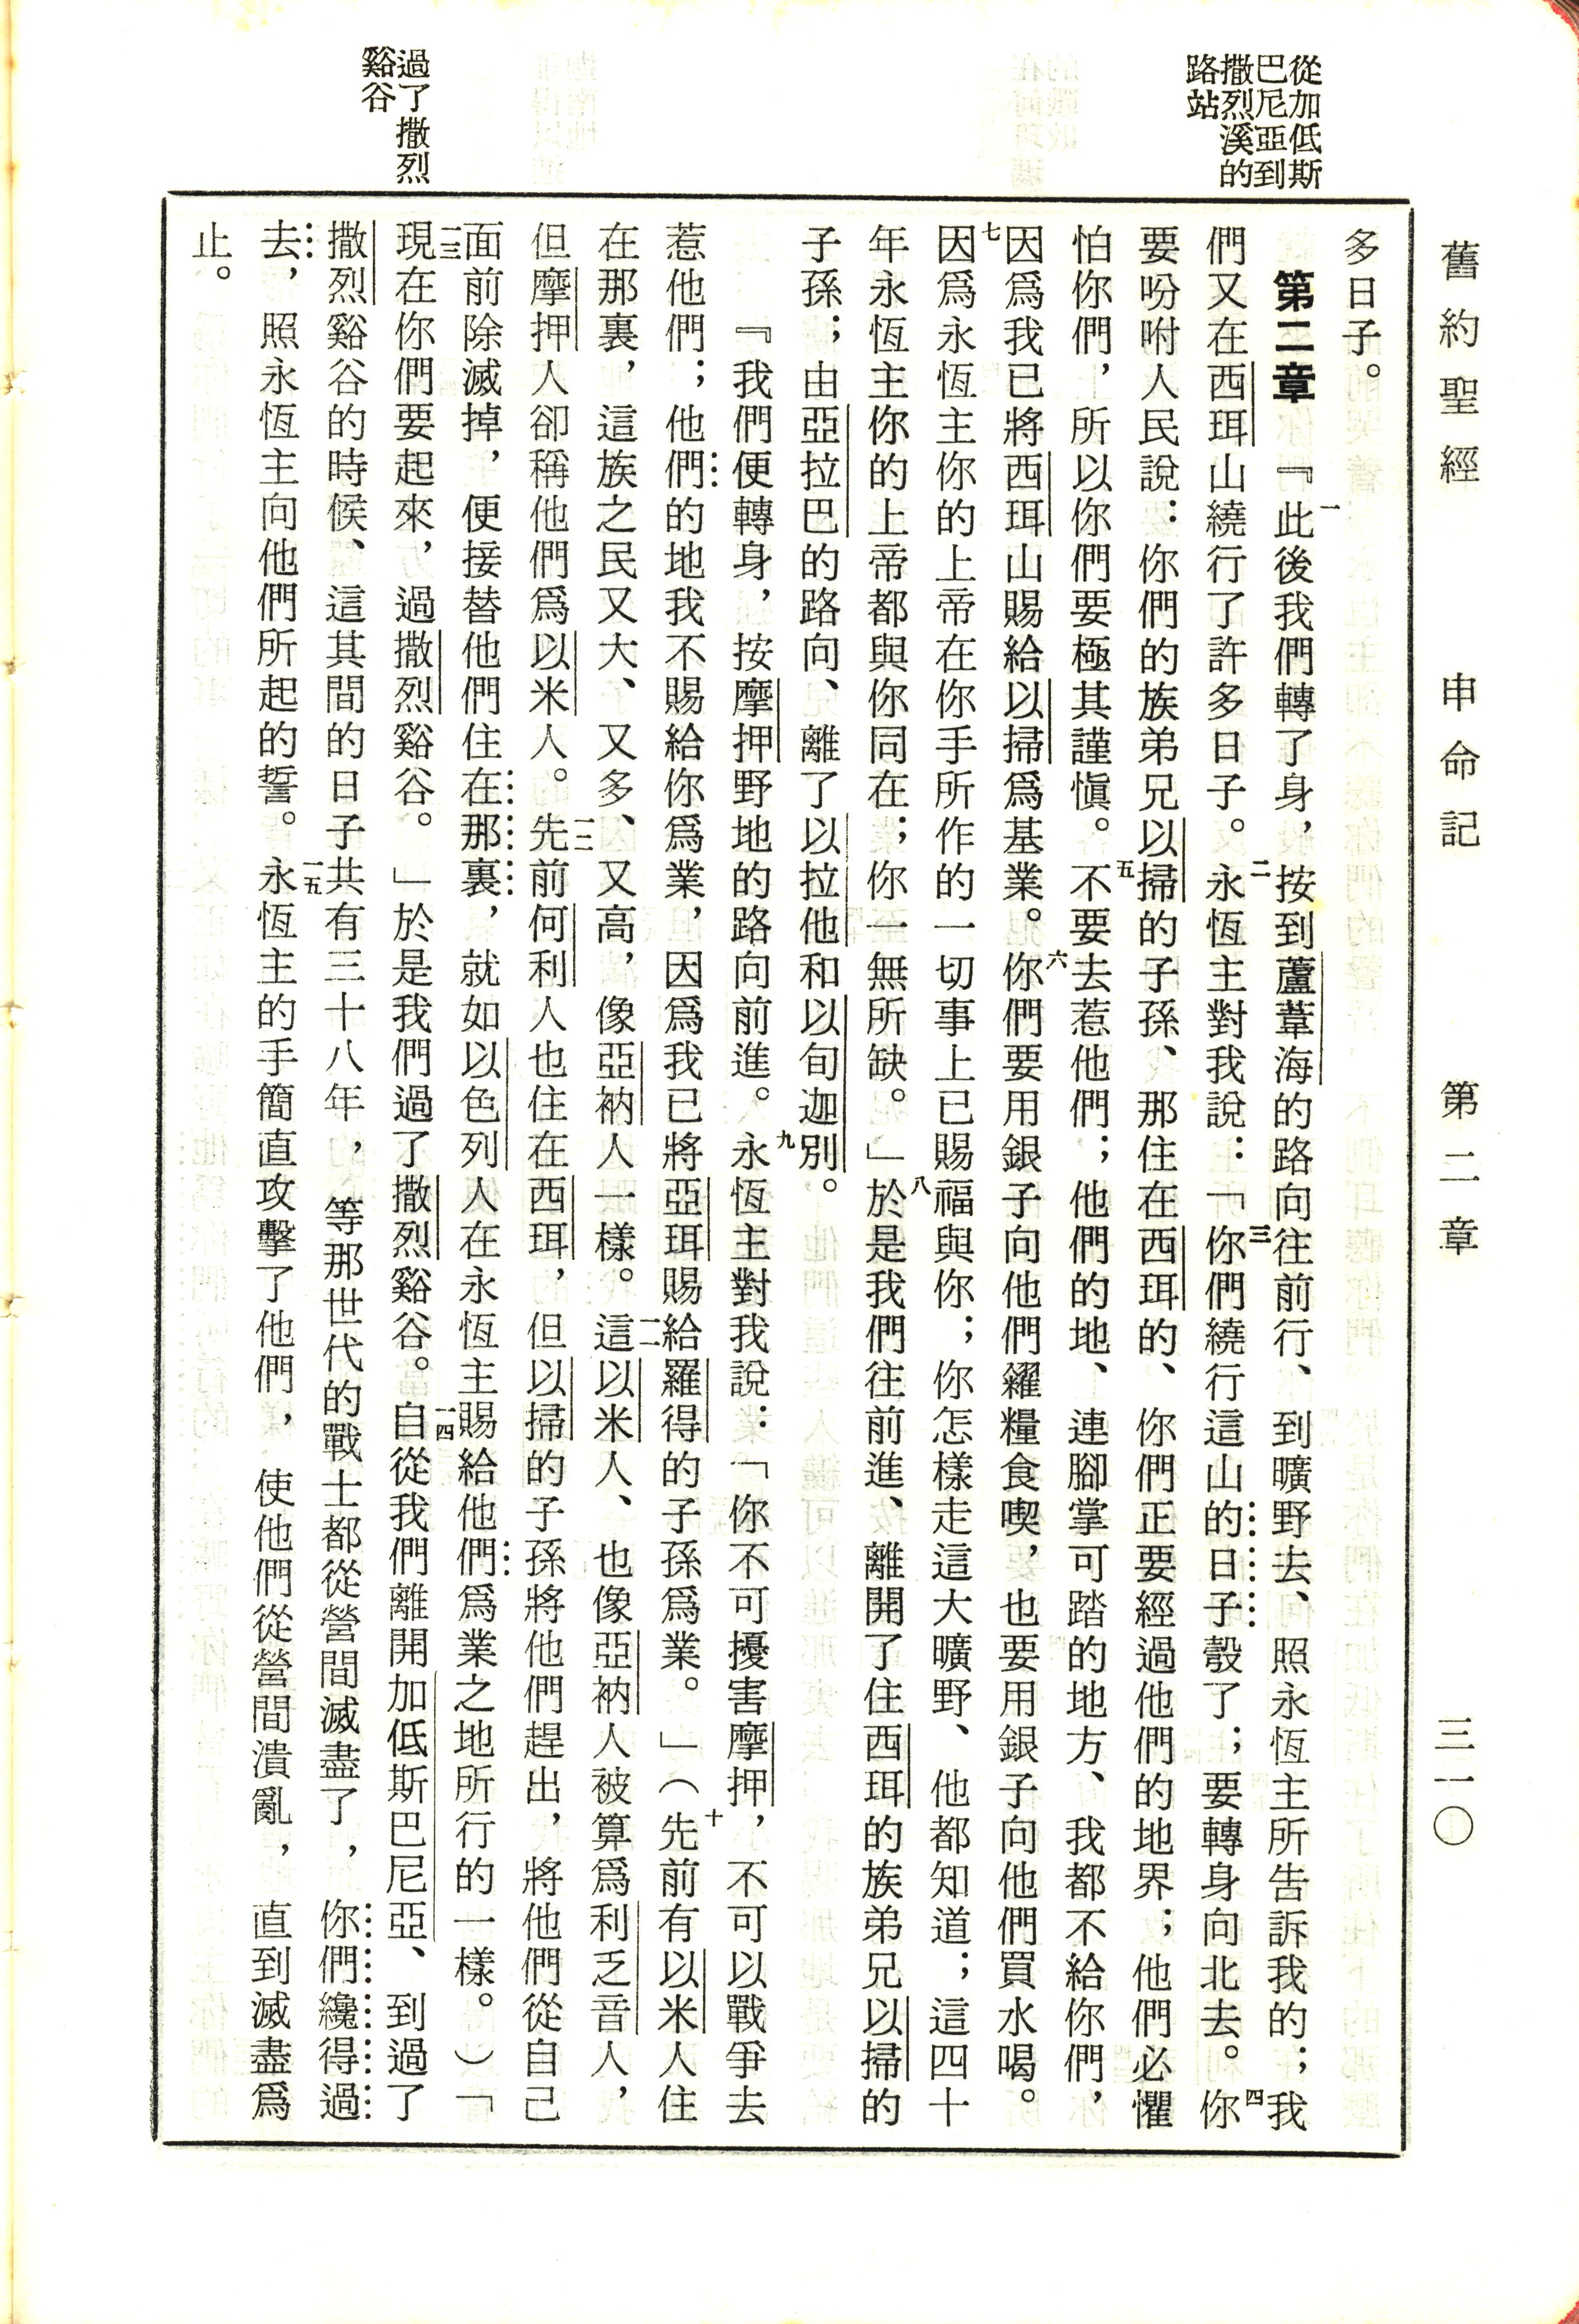 舊約聖經　申命記　第二章　三一〇
從加低斯
巴尼亞到
撒烈溪的
路站
過了撒烈
谿谷
多日子。
第二章　『一此後我們轉了身，按到蘆葦海的路向往前行、到曠野去、照永恆主所告訴我的；我
們又在西珥山繞行了許多日子。二永恆主對我說：「三你們繞行這山的日子彀了；要轉身向北去。四你
要吩咐人民說：你們的族弟兄以掃的子孫、那住在西珥的、你們正要經過他們的地界；他們必懼
怕你們，所以你們要極其謹愼。五不要去惹他們；他們的地、連腳掌可踏的地方、我都不給你們，
因爲我已將西珥山賜給以掃爲基業。六你們要用銀子向他們糴糧食喫，也要用銀子向他們買水喝。
七因爲永恆主你的上帝在你手所作的一切事上已賜福與你；你怎樣走這大曠野、他都知道；這四十
年永恆主你的上帝都與你同在；你一無所缺。」八於是我們往前進、離開了住西珥的族弟兄以掃的
子孫；由亞拉巴的路向、離了以拉他和以旬迦別。
『我們便轉身，按摩押野地的路向前進。九永恆主對我說：「你不可擾害摩押，不可以戰爭去
惹他們；他們的地我不賜給你爲業，因爲我已將亞珥賜給羅得的子孫爲業。」（十先前有以米人住
在那裏，這族之民又大、又多、又高，像亞衲人一樣。一一這以米人、也像亞衲人被算爲利乏音人，
但摩押人卻稱他們爲以米人。一二先前何利人也住在西珥，但以掃的子孫將他們趕出，將他們從自己
面前除滅掉，便接替他們住在那裏，就如以色列人在永恆主賜給他們爲業之地所行的一樣。）「
一三現在你們要起來，過撒烈谿谷。」於是我們過了撒烈谿谷。一四自從我們離開加低斯巴尼亞、到過了
撒烈谿谷的時候、這其間的日子共有三十八年，等那世代的戰士都從營間滅盡了，你們纔得過
去，照永恆主向他們所起的誓。一五永恆主的手簡直攻擊了他們，使他們從營間潰亂，直到滅盡爲
止。